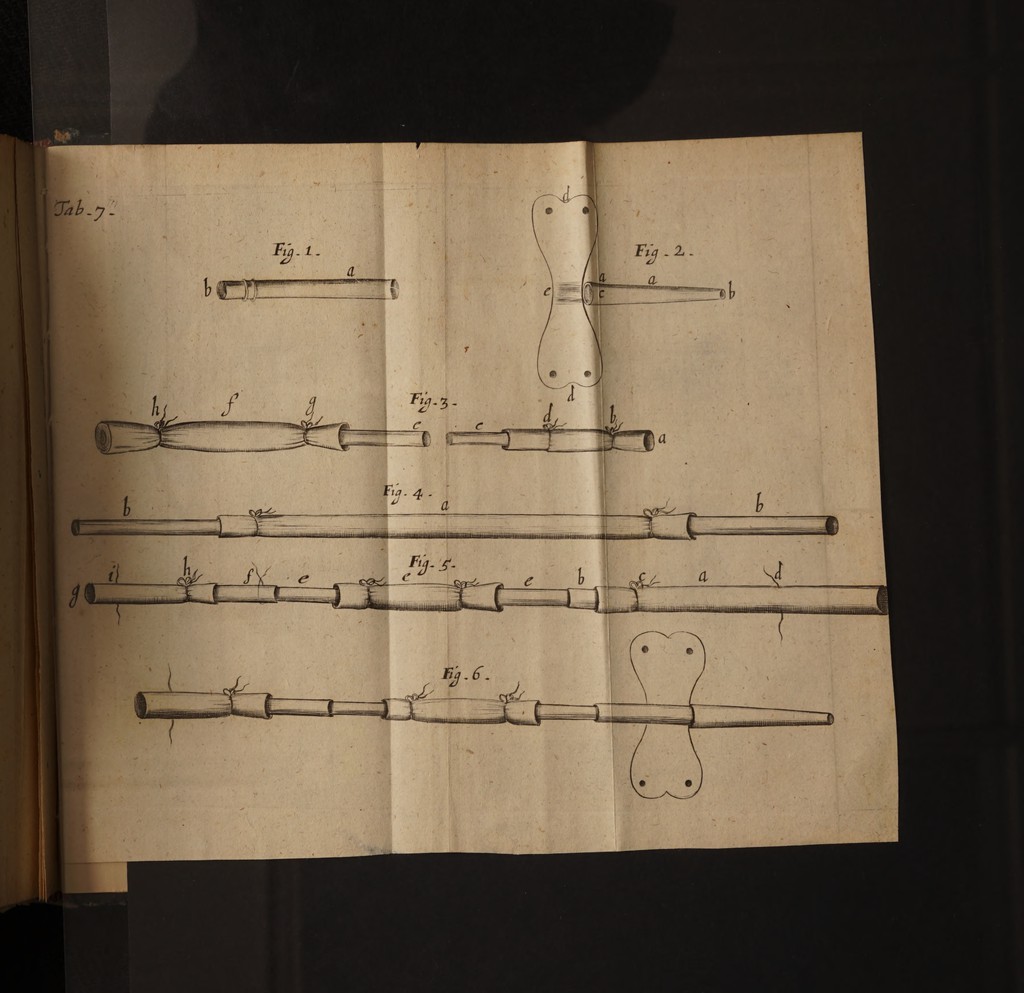 Tab. 7.
Fig. 1.
a
b
Fig. 2.
d
a
a
b
e
c
d
Fig. 3.
h
f
g
e
c
d
b
a
Fig. 4.
b
a
b
Fig. 5.
g
i
h
f
e
e
e
b
c
a
d
Fig. 6.